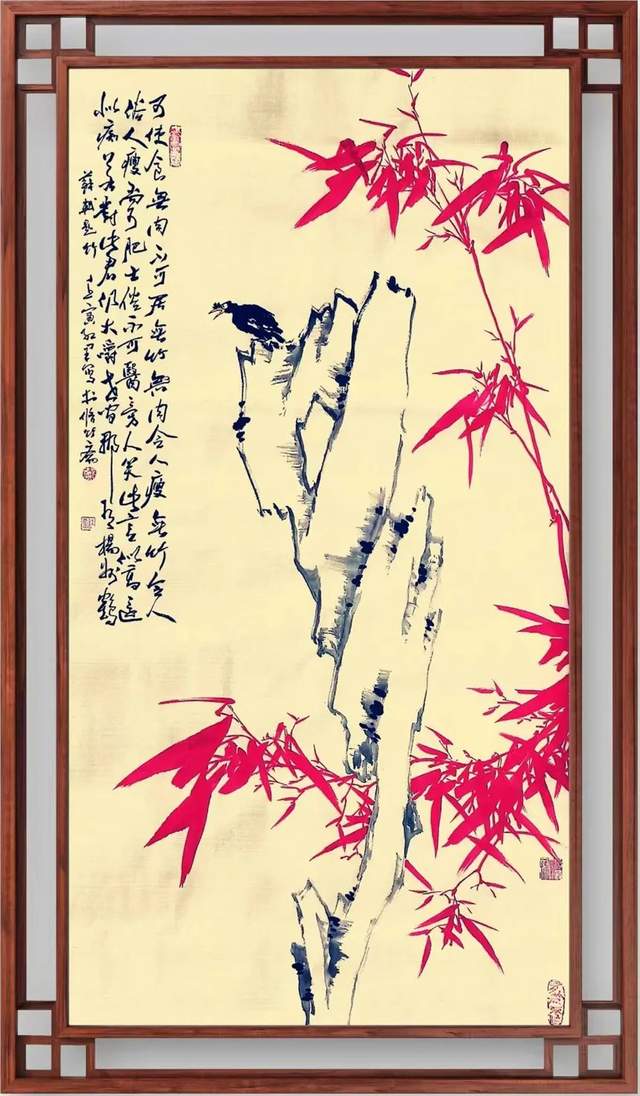 可使食無肉不可居無竹無肉令人瘦無竹令人
俗人瘦尚可肥士俗不可醫旁人笑此言似高還
似痴若對此君仍大嚼世間那有楊州鶴
蘇軾題竹 壬寅